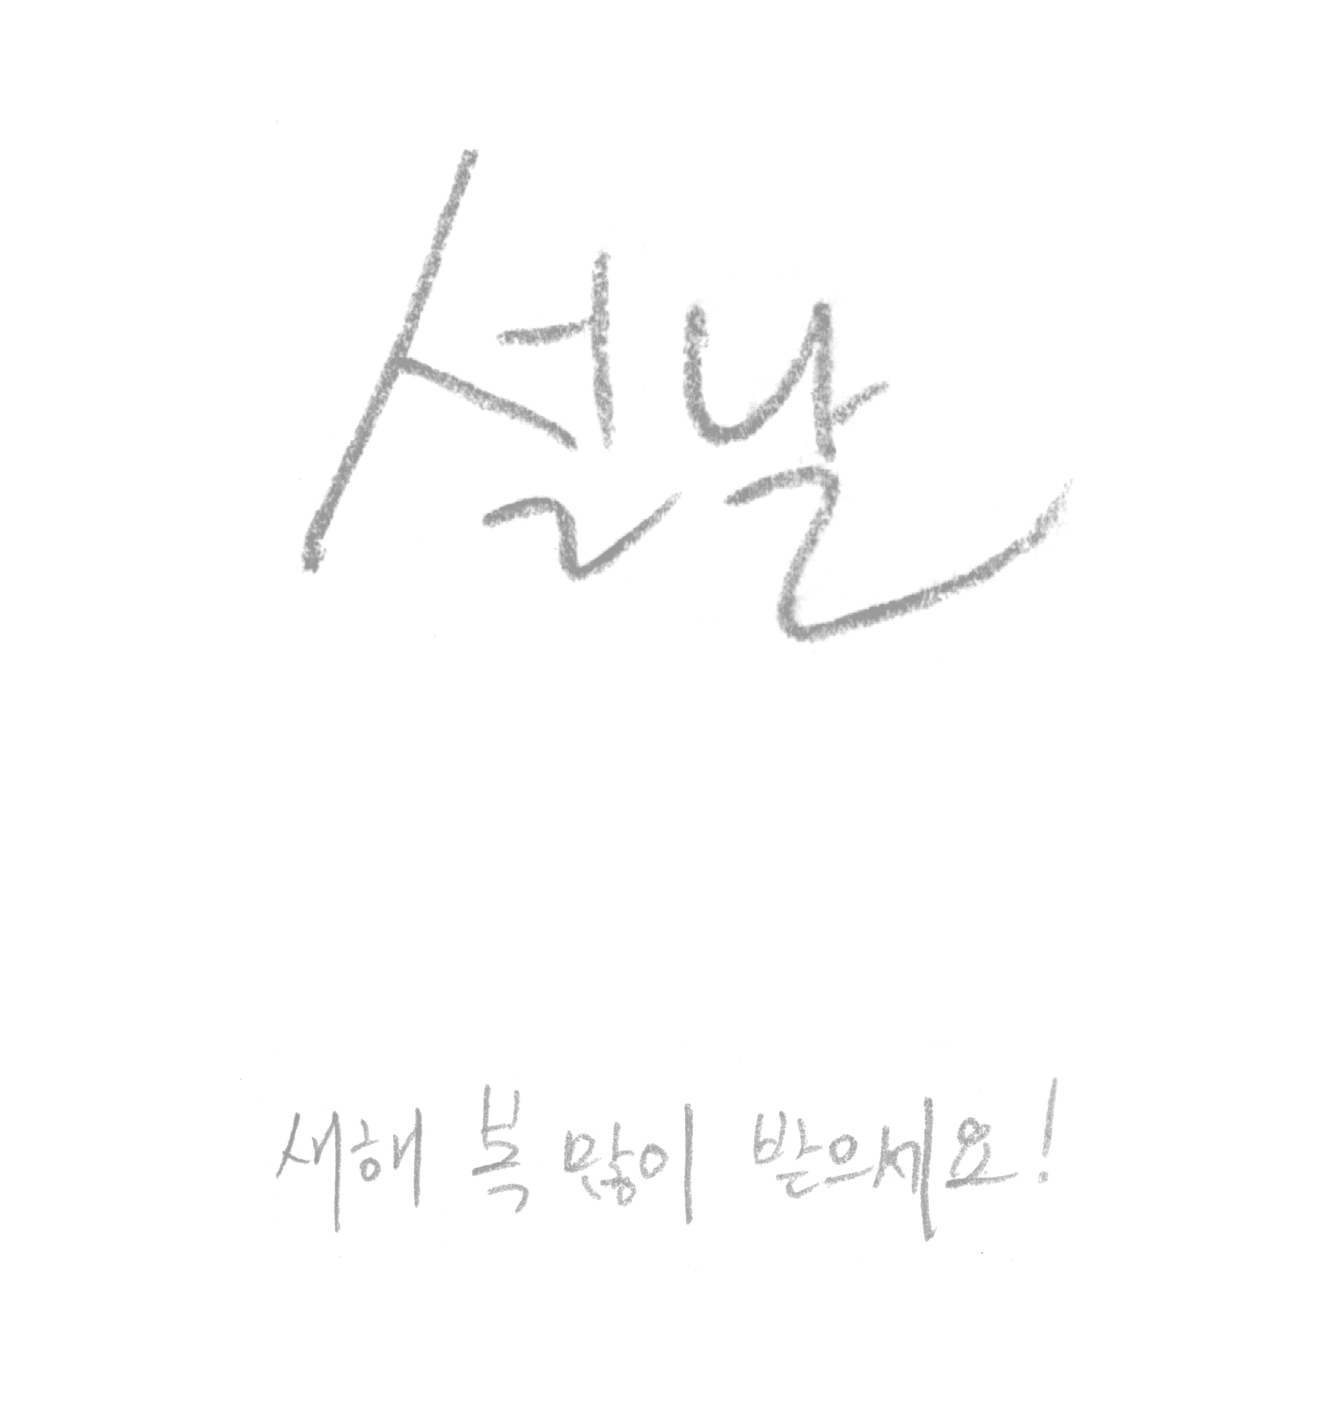 설날
새해 복 많이 받으세요!